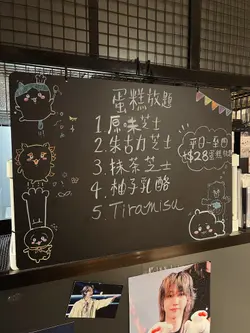 蛋糕放題
1 原味芝士
2 朱古力芝士
3 抹茶芝士
4 柚子乳酪
5. Tiramisu
平日一至四
+$28蛋糕放題